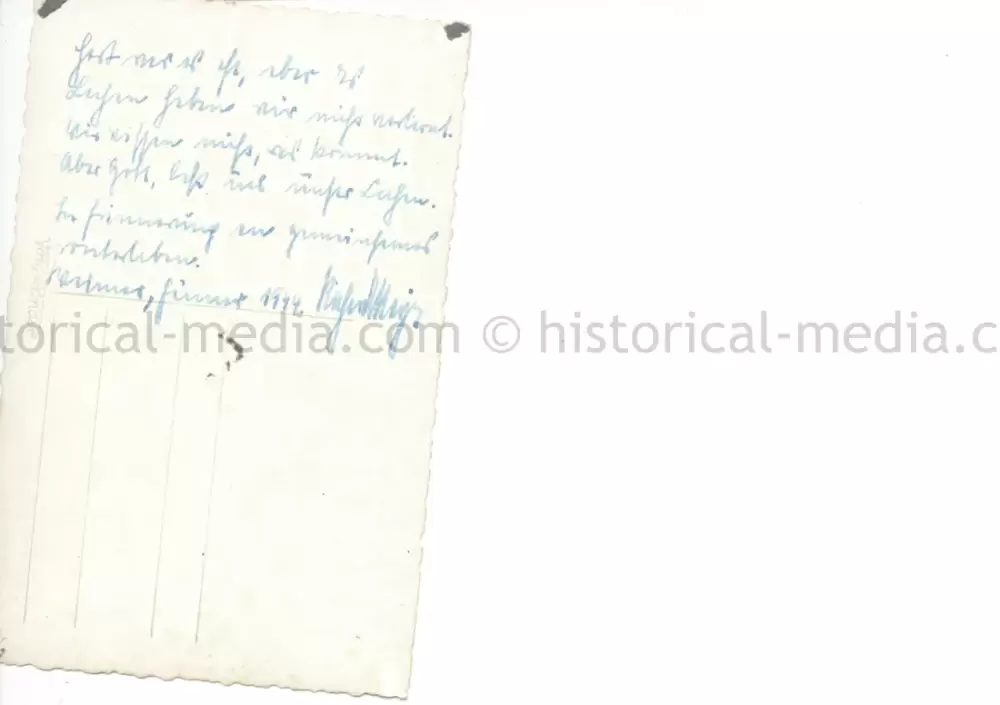 Hart war es oft, aber das
Lachen haben wir nicht verlernt.
Wir wissen nicht, was kommt.
Aber Gott, laß uns unser Lachen.
Zur Erinnerung an gemeinsames
Weimar, Jänner 1942
torical-media.com © historical-media.c